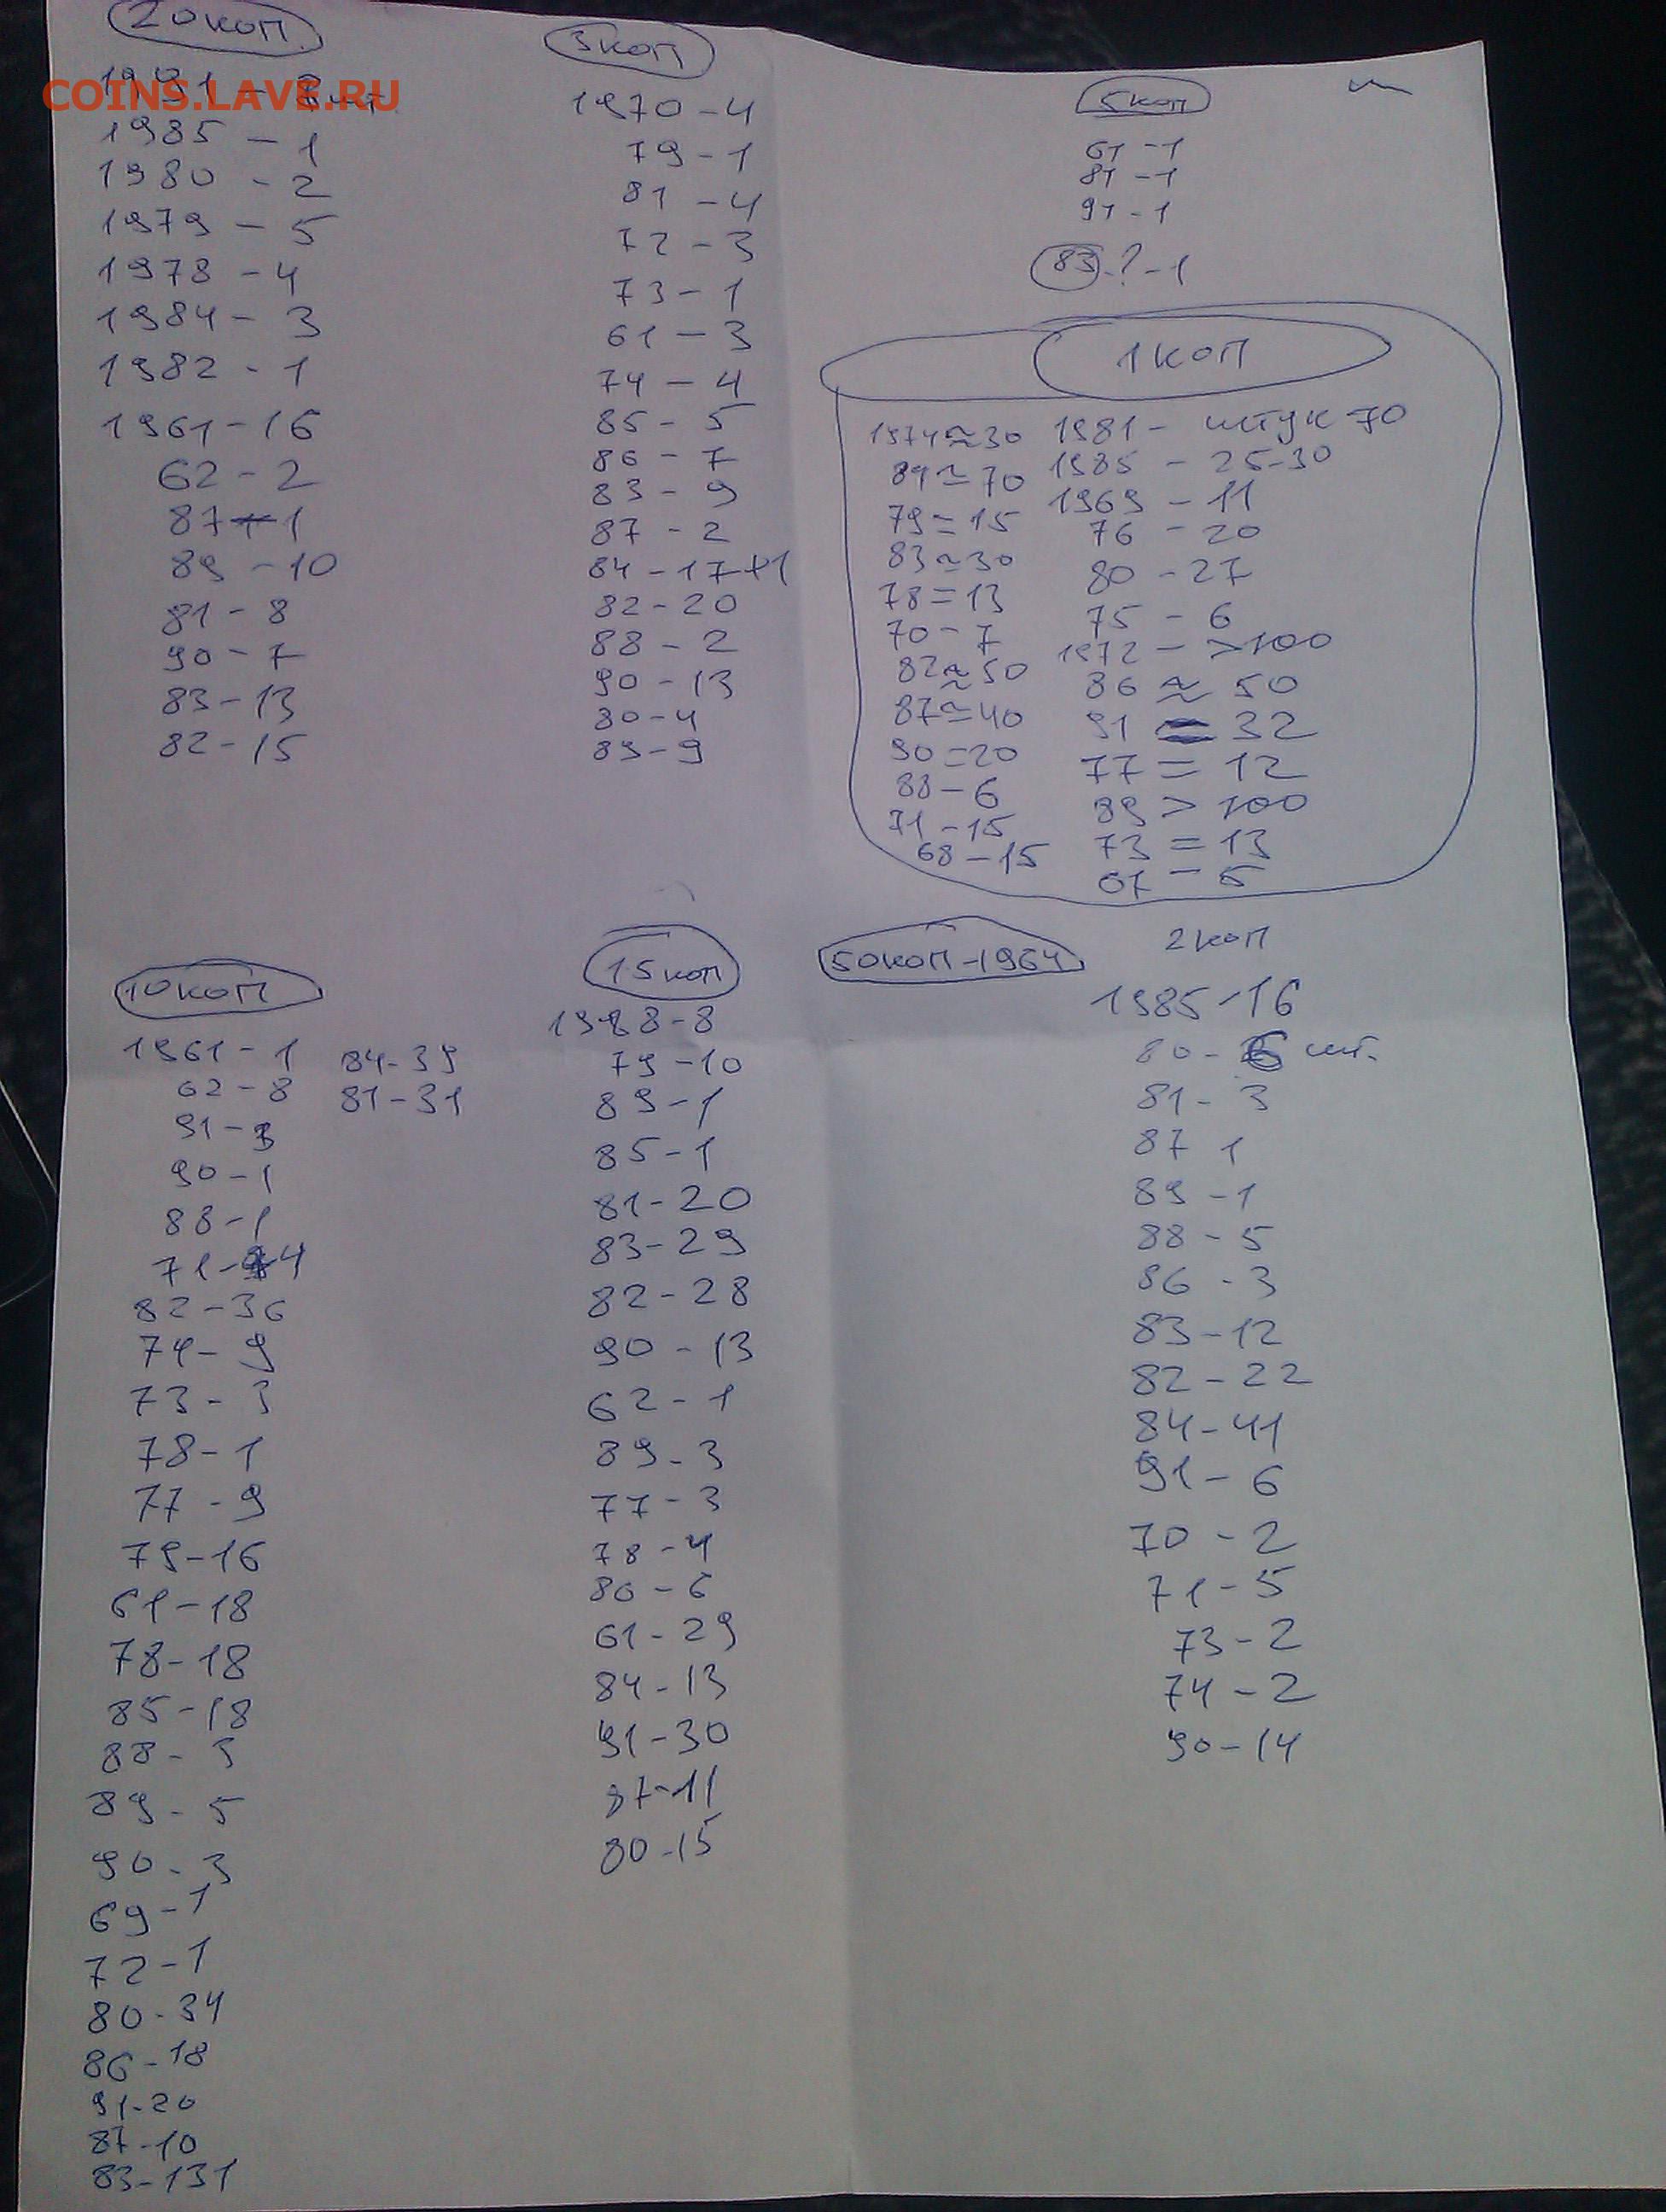 COINS.LAVE.RU
20 коп.
1985 - 1
1980 - 2
1979 - 5
1978 - 4
1984 - 3
1982 - 1
1961 - 16
62 - 2
87 - 1
89 - 10
81 - 8
90 - 7
83 - 13
82 - 15
3 коп
1970 - 4
79 - 1
81 - 4
72 - 3
73 - 1
61 - 3
74 - 4
85 - 5
86 - 7
83 - 9
87 - 2
84 - 17+1
82 - 20
88 - 2
90 - 13
80 - 4
89 - 9
5 коп
61 - 1
81 - 1
91 - 1
83 - ? - 1
1 коп
1974 ≈ 30
89 ≃ 70
79 = 15
83 ≃ 30
78 = 13
70 - 7
82 ≈ 50
87 ≃ 40
90 = 20
88 - 6
71 - 15
68 - 15
1981 - штук 70
1985 - 25-30
1969 - 11
76 - 20
80 - 27
75 - 6
1972 - >100
86 ≈ 50
91 = 32
77 = 12
89 > 100
73 = 13
67 - 5
10 коп
1961 - 1
62 - 8
91 - 3
90 - 1
88 - 1
71 - 4
82 - 36
74 - 9
73 - 3
78 - 1
77 - 9
79 - 16
61 - 18
78 - 18
85 - 18
88 - 3
89 - 5
90 - 3
69 - 1
72 - 1
80 - 34
86 - 18
91 - 20
87 - 10
83 - 131
84 - 39
81 - 31
15 коп
1988 - 8
79 - 10
89 - 1
85 - 1
81 - 20
83 - 29
82 - 28
90 - 13
62 - 1
89 - 3
77 - 3
78 - 4
80 - 6
61 - 29
84 - 13
91 - 30
87 - 11
80 - 15
50 коп - 1964
2 коп
1985 - 16
80 - 6 шт.
81 - 3
87 1
89 - 1
88 - 5
86 - 3
83 - 12
82 - 22
84 - 41
91 - 6
70 - 2
71 - 5
73 - 2
74 - 2
90 - 14